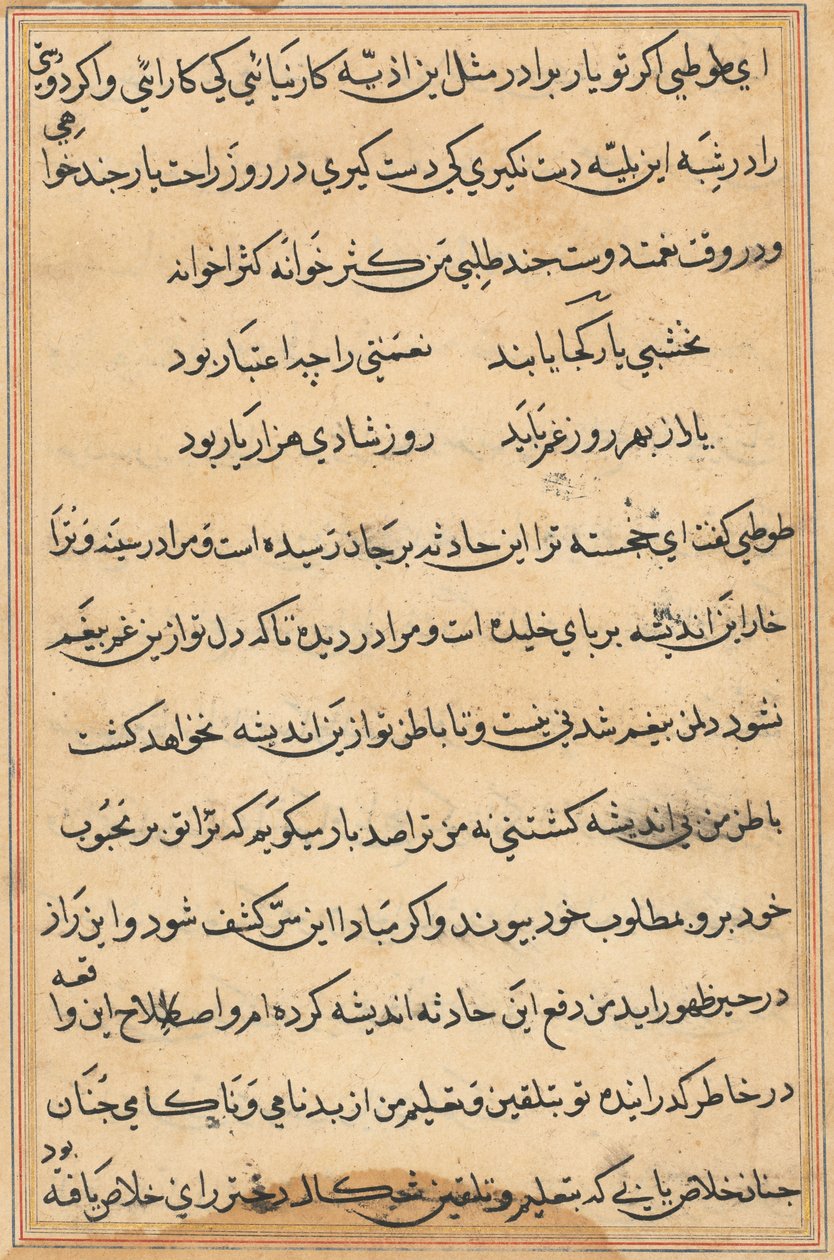 اي طوطي اكر تو يار برادر مثل اين اذيّه كار نيائي كي كار ائي واكر دوستي
را در شبه اين بليّه دست نكيري كي دست كيري در روز راحت يار جند خواهي
ودر وقت نعمت دوست جند طلبي من كثر خوانه كثر اخوانه
نخشبي يار كجا يابند نعمتي را چه اعتبار بود
يار از بهر روز غم بايد روز شادي هزار يار بود
طوطي كفت اي خجسته ترا اين حادثه بر جان رسيده است و مرا در سينه و ترا
خار اين انديشه بر باي خليده است و مرا در ديده تا كه دل تو ازين غم بيغم
نشود دلمن بيغم شدني نيست و تا باطن تو ازين انديشه نخواهد كشت
باطن من بي انديشه كشتني نه من ترا صد بار ميكويم كه ترا تو بر محبوب
خود برو بمطلوب خود بيوند واكر مبادا اين سرّ كشف شود و اين راز
در حيز ظهور ايد من دفع اين حادثه انديشه كرده ام و اصطلاح اين واقعه
در خاطر كذرانيده تو بتلقين و تعليم من از بدنامي و ناكامي جنان
جنان خلاص يابي كه بتعليم و تلقين شكال دختر راي خلاص يافه بود